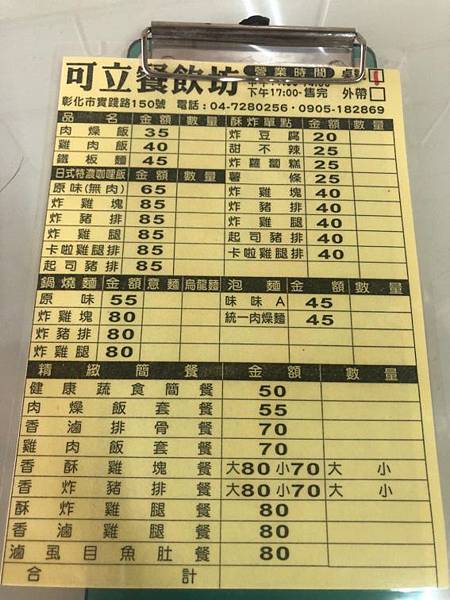 可立餐飲坊 營業時間 桌號
下午17:00-售完 外帶
彰化市實踐路150號 電話：04-7280256·0905-182869
品名 金額 數量 酥炸單點 金額 數量
肉燥飯 35 炸豆腐 20
雞肉飯 40 甜不辣 25
鐵板麵 45 炸蘿蔔糕 25
日式特濃咖哩飯 金額 數量 薯條 25
原味(無肉) 65 炸雞塊 40
炸雞塊 85 炸豬排 40
炸豬排 85 炸雞腿 40
炸雞腿 85 起司豬排 40
卡啦雞腿排 85 卡啦雞腿排 40
起司豬排 85
鍋燒麵 金額 意麵 烏龍麵 泡麵 金額 數量
原味 55 味味A 45
炸雞塊 80 統一肉燥麵 45
炸豬排 80
炸雞腿 80
精緻簡餐 金額 數量
健康蔬食簡餐 50
肉燥飯套餐 55
香滷排骨餐 70
雞肉飯套餐 70
香酥雞塊餐 大80小70 大 小
香炸豬排餐 大80小70 大 小
酥炸雞腿餐 80
香滷雞腿餐 80
滷虱目魚肚餐 80
合計